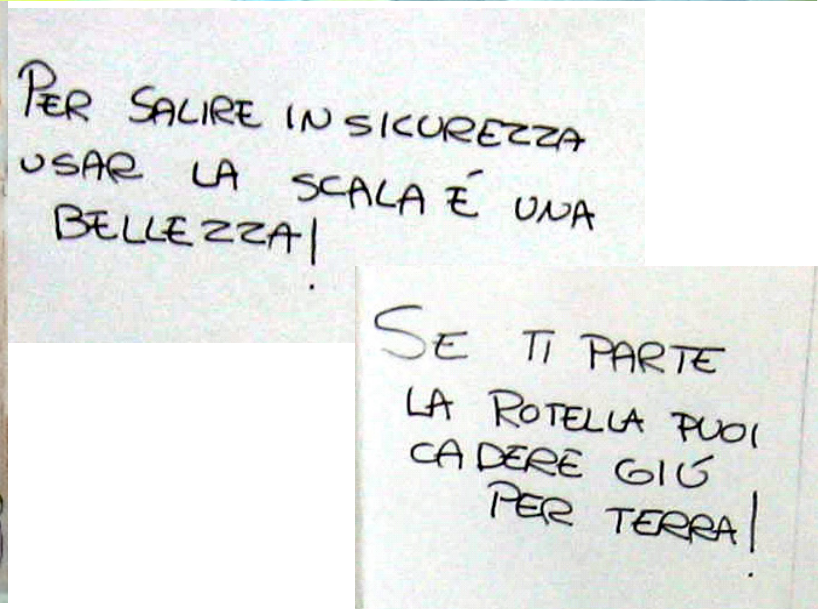 PER SALIRE IN SICUREZZA
USAR LA SCALA É UNA
BELLEZZA!
SE TI PARTE
LA ROTELLA PUOI
CADERE GIÚ
PER TERRA!